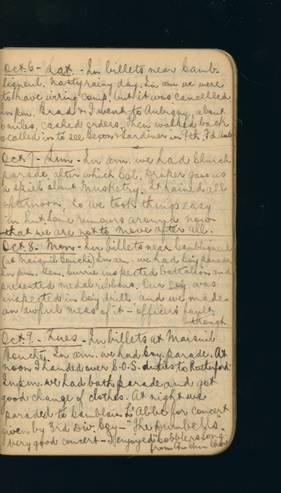 Oct. 6 - Sat. - In billets near Camb-
ligneul. Nasty rainy day. In a.m. we were
to have wiring comp. but it was cancelled
in p.m. Brad & I went to Aubigny, about
6 miles, cashed orders, then walked back
& called in to see Sexton & Gardiner in 9th Fd. Amb.
Oct. 7 - Sun. - In a.m. we had Church
parade, after which Col. Draper gave us
a spiel about Musketry. It rained all
afternoon, so we took things easy
in hut. Some rumours around now
that we are not to move after all.
Oct. 8 - Mon. - In billets near Cambligneul
(at Maisnil Bouché) In a.m. we had big parade
in p.m. Gen. Currie inspected battalion and
presented medal ribbons. Our Coy was
inspected in Coy drill and we made
an awful mess of it - officers fault
though
Oct. 9 - Tues. - In billets at Maisnil
Bouché. In a.m. we had Coy. parade. At
noon I handed over B.O.S. duties to Rutherford
in p.m. we had bath parade and got
good change of clothes. At night we
paraded to Camblain L'Abbe for concert
given by 3rd Div. Coy - "The Dumbells"
Very good concert - I enjoyed Cobblers Song
from Chu Chin Chow